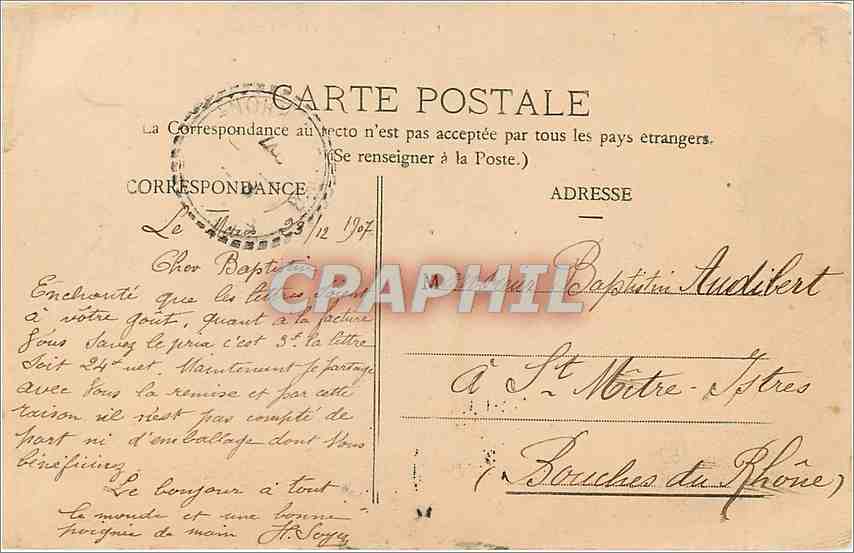 CARTE POSTALE
La Correspondance au recto n'est pas acceptée par tous les pays étrangers.
(Se renseigner à la Poste.)
CORRESPONDANCE
ADRESSE
Le 23/12 1907
Cher Baptistin
Enchanté que les lettres soyent
à votre goût, quant à la facture
Vous savez le prix c'est 3f. la lettre
Soit 24f net. Maintenant je partage
avec Vous la remise et par cette
raison il n'est pas compté de
port ni d'emballage dont Vous
bénéficiez
Le bonjour à tout
le monde et une bonne
poignée de main
Monsieur Baptistin Audibert
À St Mître-Istres
(Bouches du Rhône)
CPAPHIL